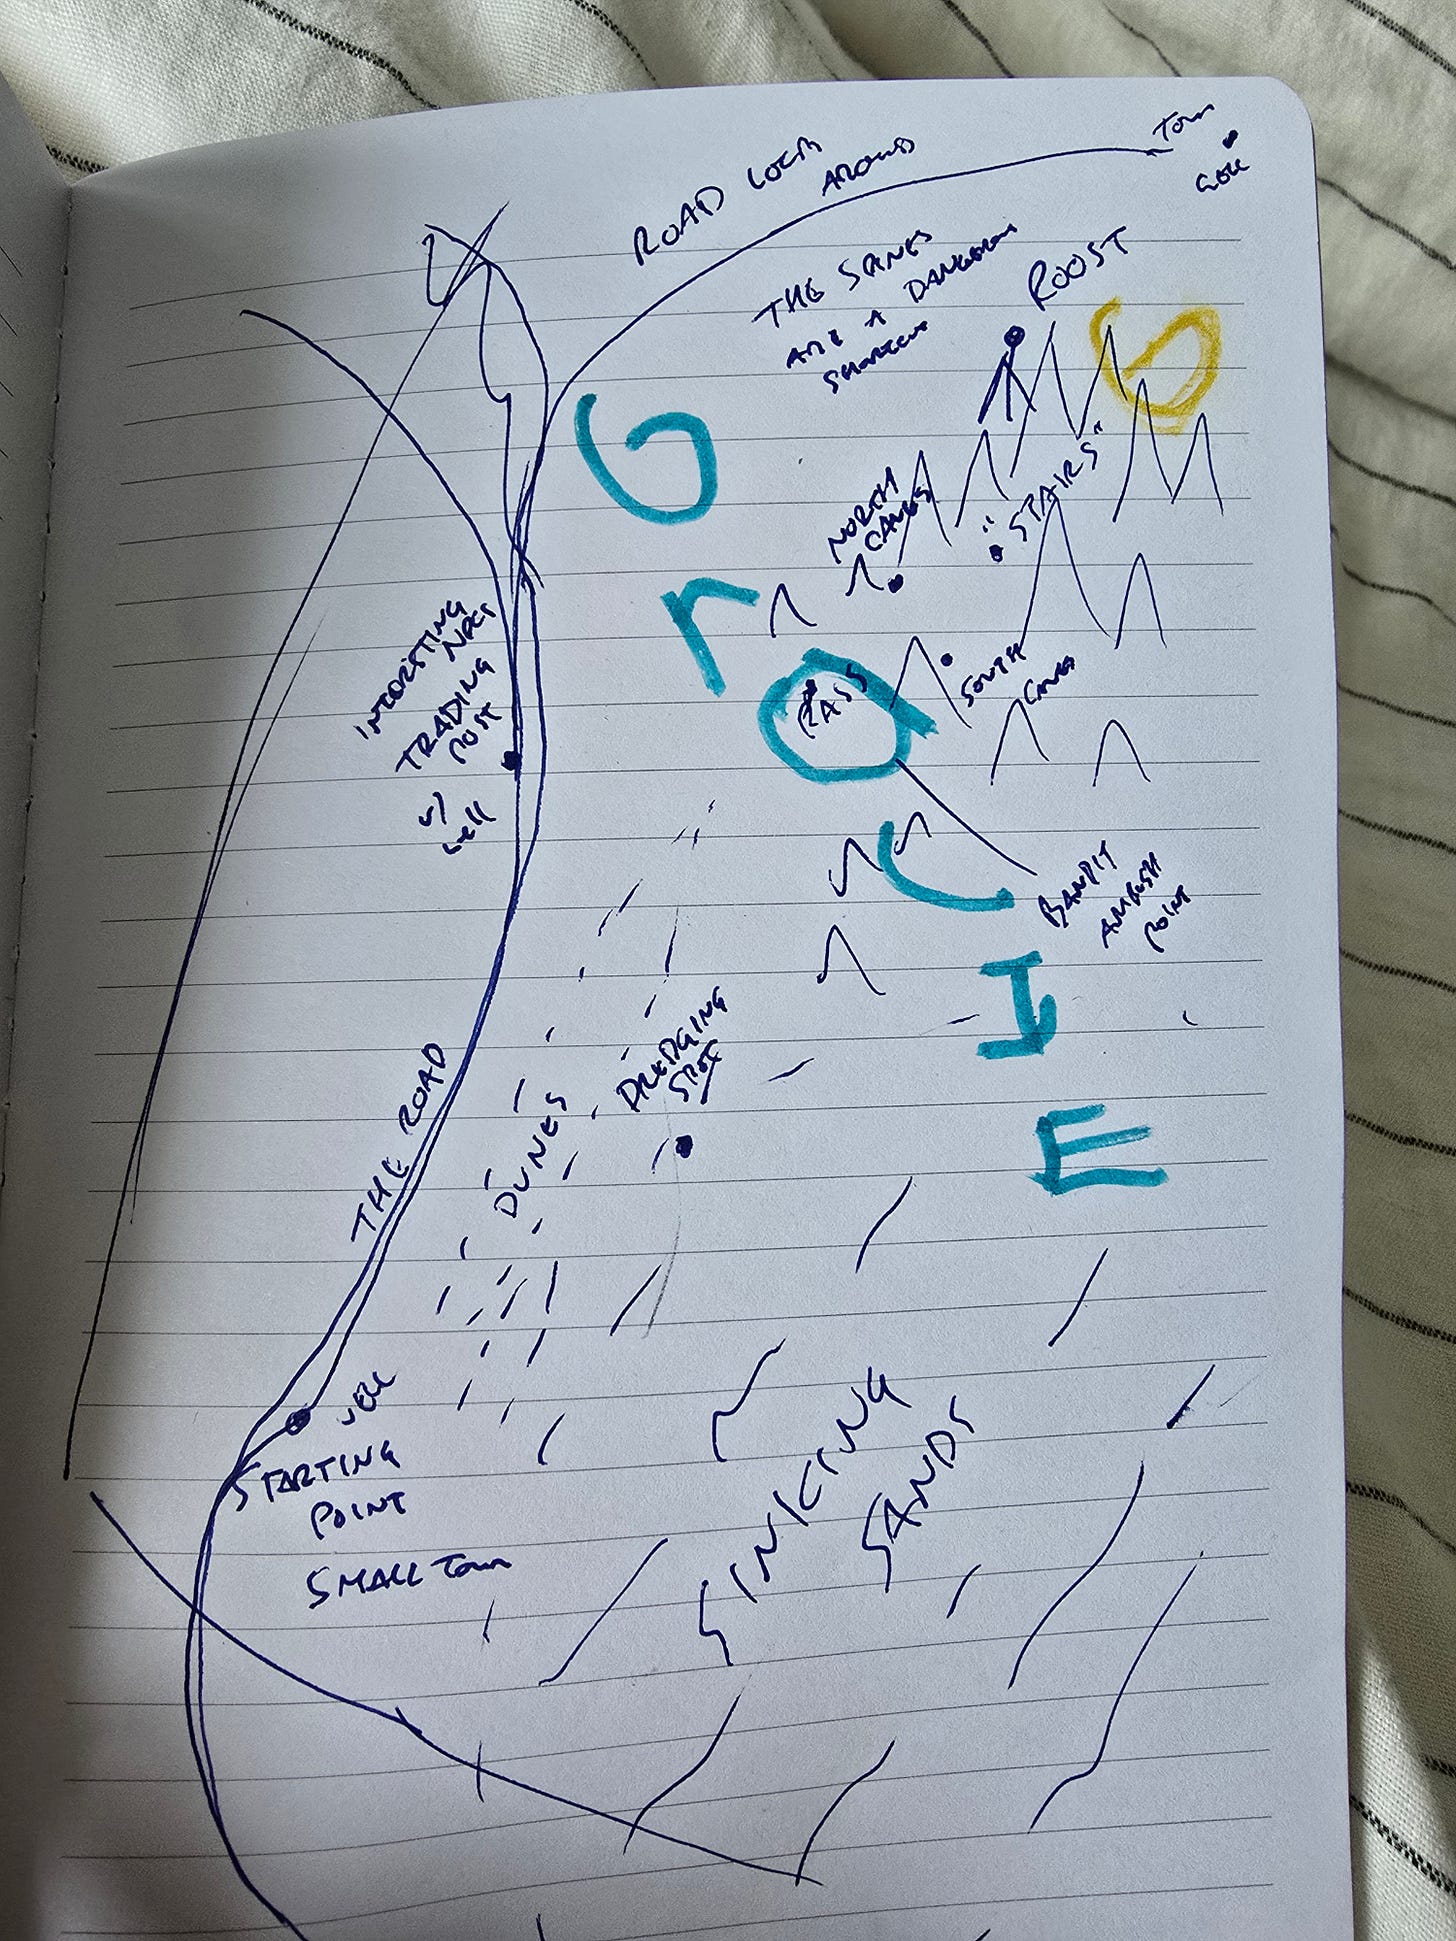 ROAD
AROUND
Town
WELL
THE SPINES
ARE A DANGEROUS
SHORTCUT
ROOST
G
"STAIRS"
NORTH
CAVES
SOUTH
CAVES
PASS
BANDIT
AMBUSH
POINT
GrACIE
INTERESTING
NPCS
TRADING
POST
w/
well
THE ROAD
DUNES
DREDGING
SPOT
WELL
STARTING
POINT
SMALL Town
SINKING
SANDS